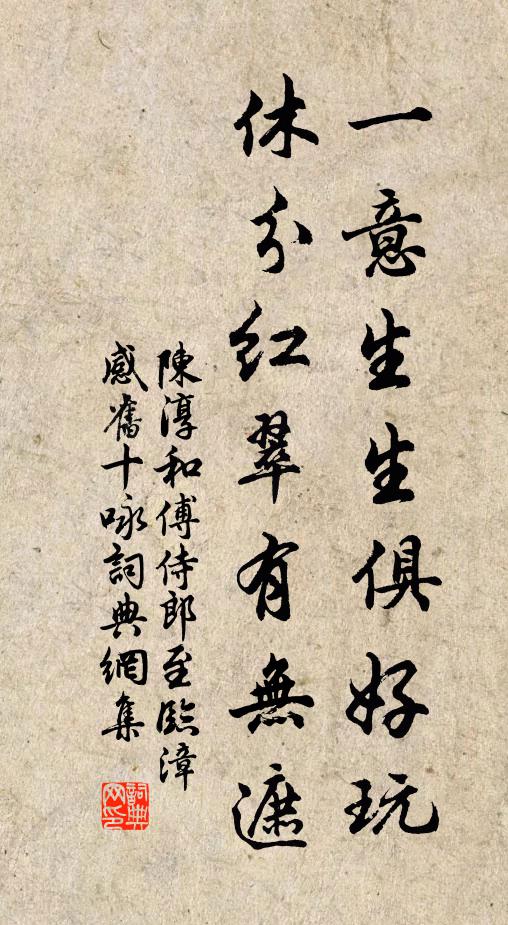 一意生生俱好玩
休分红翠有無遮
陳淳和傅侍郎至臨漳
感舊十咏詞典網集
詞典網印